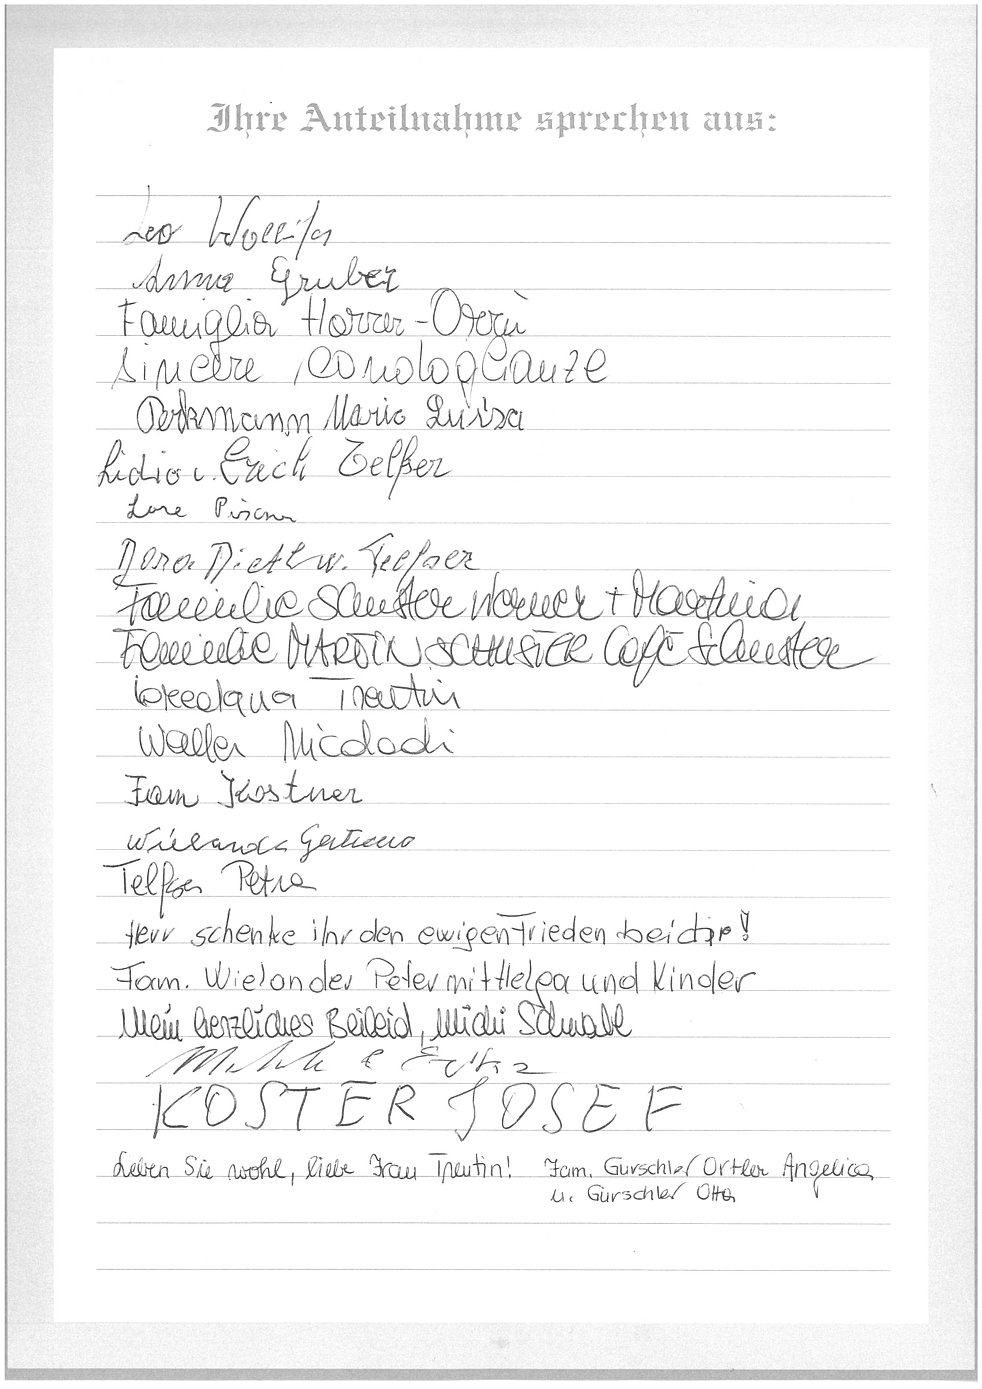 Ihre Anteilnahme sprechen aus:
Leo
Anna Gruber
Famiglia Horrer-
sincere condoglianze
Perkmann Maria Luisa
Lidia u. Erich Telfser
Lore
Dora Dietl w. Telfser
Familie Schuster Werner + Martina
Familie MARTIN SCHUSTER Café Schuster
Trentin
Walter Nicolodi
Fam Kostner
Wielander
Telfser Petra
Herr schenke ihr den ewigen Frieden bei dir!
Fam. Wielander Peter mit Helga und Kinder
Mein herzliches Beileid, Michi Schwalt
KOSTER JOSEF
Leben Sie wohl, liebe Frau Trentin! Fam. Gurschler Ortler Angelica
u. Gurschler Otto